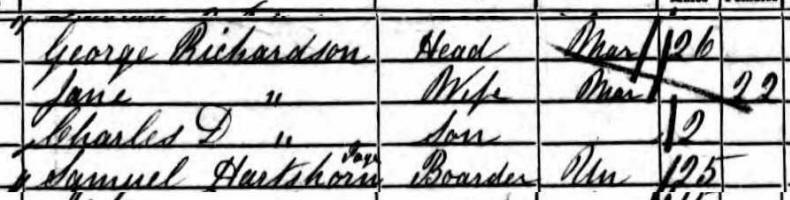 George Richardson Head Mar 26
Jane " Wife Mar 22
Charles D " Son 2
Samuel Hartshorn Boarder Un 25